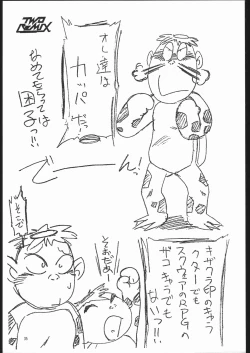 TWO-REMIX
オレ達は
カッパだ!
なめてもらっては
困る!!
で〜ん!
キザクラ印のキャラ
クターでも
スクウェアのRPGの
ザコキャラでも
ないっ!!
そおだぁ!
そこで